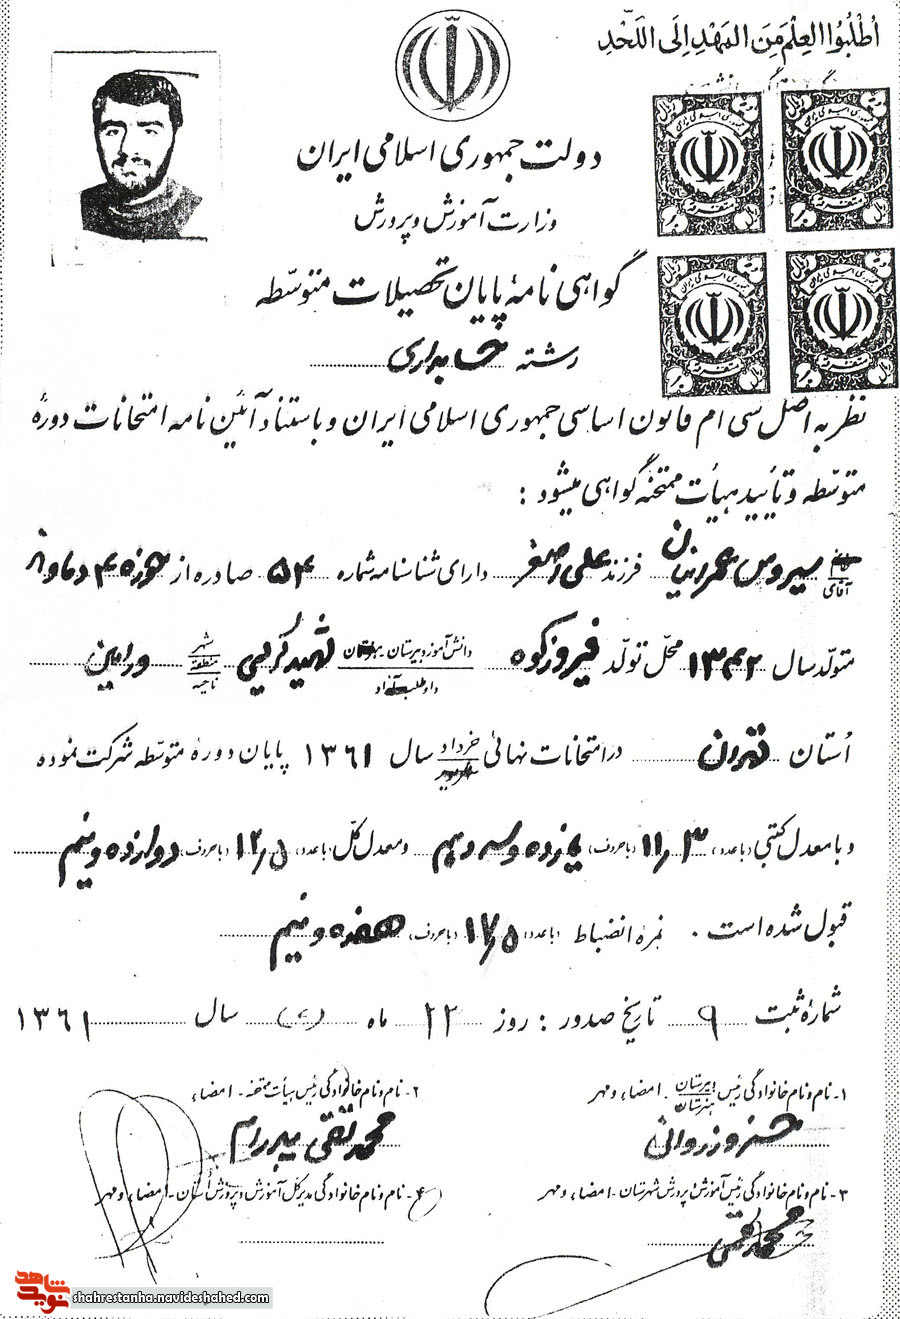 اُطْلُبُوا العِلْمَ مِنَ المَهْدِ اِلَی اللَّحْدِ
دولت جمهوری اسلامی ایران
وزارت آموزش و پرورش
گواهی نامهٔ پایان تحصیلات متوسّطه
رشته حسابداری
نظر به اصل سی ام قانون اساسی جمهوری اسلامی ایران و با استناد آئین نامه امتحانات دورهٔ
متوسّطه و تأیید هیأت ممتحنه گواهی میشود :
آقای سیروس مهرانیان فرزند علی اصغر دارای شناسنامه شماره ۵۴ صادره از حوزه ۴ دماوند
متولّد سال ۱۳۴۲ محل تولّد فیروزکوه دانش آموز دبیرستان شهید کریمی شهر منطقه ناحیه ورامین
داوطلب آزاد
اُستان تهران در امتحانات نهائی خرداد سال ۱۳۶۱ پایان دورهٔ متوسّطه شرکت نموده
و با معدل کتبی (با عدد) ۱۱٫۳ (با حروف) یازده و سه دهم و معدل کلّ (با عدد) ۱۲٫۵ (با حروف) دوازده و نیم
قبول شده است . نمرهٔ انضباط (با عدد) ۱۷٫۵ (با حروف) هفده و نیم
شمارهٔ ثبت ۹ تاریخ صدور : روز ۲۲ ماه (۴) سال ۱۳۶۱
۱- نام و نام خانوادگی رئیس دبیرستان هنرستان - امضاء و مهر
۲- نام و نام خانوادگی رئیس هیأت ممتحنه - امضاء
محمد تقی
۳- نام و نام خانوادگی رئیس آموزش و پرورش شهرستان - امضاء و مهر
۴- نام و نام خانوادگی مدیر کل آموزش و پرورش اُستان - امضاء و مهر
نوید شاهد
shahrestanha.navideshahed.com